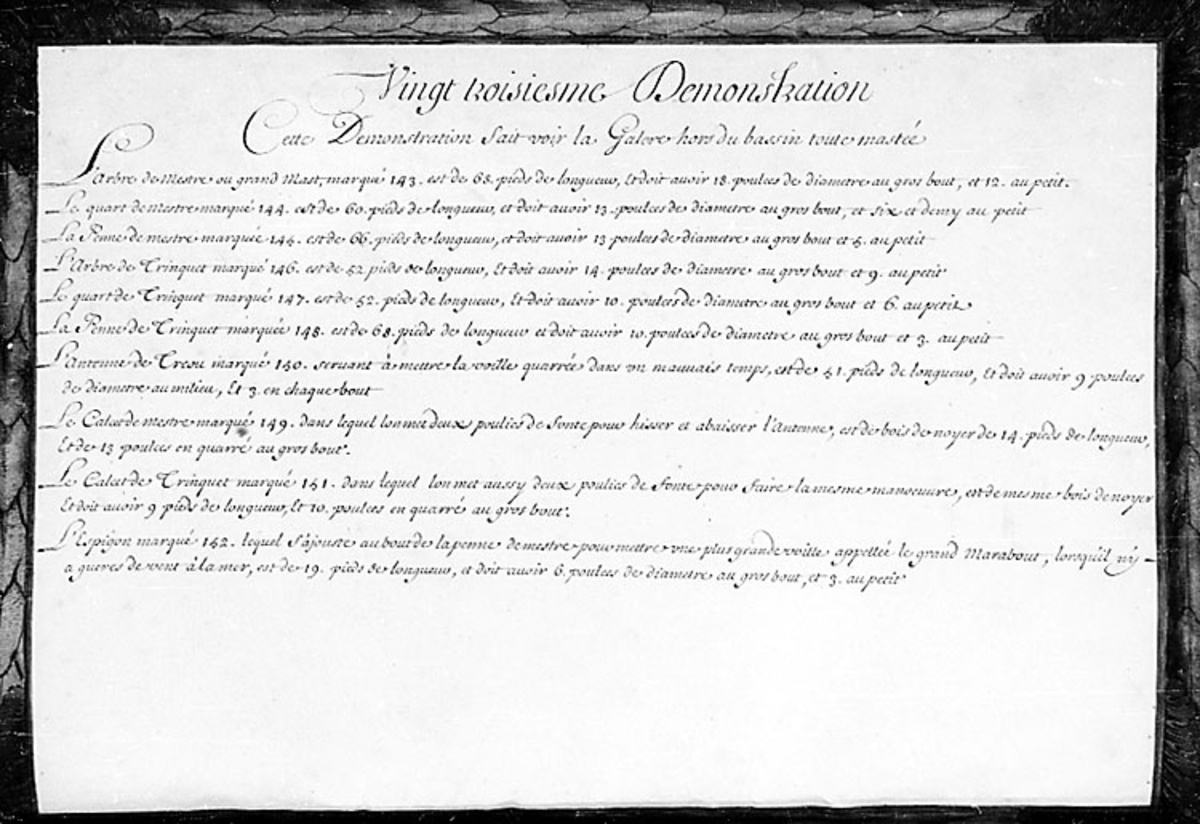 Vingt troisiesme Demonstration
Cette Demonstration fait voir la Galere hors du bassin toute mastée
L'arbre de Mestre ou grand Mast, marqué 143. est de 68. pieds de longueur, Et doit avoir 18. poulces de diametre au gros bout, et 12. au petit.
Le quart de Mestre marqué 144. est de 60. pieds de longueur, et doit avoir 13. poulces de diametre au gros bout, et six et demy au petit
La Penne de mestre marquée 145. est de 66. pieds de longueur, et doit avoir 13 poulces de diametre au gros bout et 5. au petit
L'Arbre de Trinquet marqué 146. est de 52 pieds de longueur, Et doit avoir 14. poulces de diametre au gros bout et 9. au petit
Le quart de Trinquet marqué 147. est de 52. pieds de longueur, Et doit avoir 10. poulces de diametre au gros bout et 6. au petit
La Penne de Trinquet marquée 148. est de 68. pieds de longueur et doit avoir 10. poulces de diametre au gros bout et 3. au petit
L'Antenne de Treou marqué 150. servant à mettre la voille quarrée dans un mauvais temps, est de 51. pieds de longueur, Et doit avoir 9 poulces
de diametre au milieu, Et 3. en chaque bout
Le Calcet de mestre marqué 149. dans lequel lon met deux poulies de fonte pour hisser et abaisser l'Antenne, est de bois de noyer de 14. pieds de longueur,
Et de 13 poulces en quarré au gros bout.
Le Calcet de Trinquet marqué 151. dans lequel lon met aussy deux poulies de fonte pour faire la mesme manoeuvre, est de mesme bois de noyer
Et doit avoir 9 pieds de longueur, Et 10. poulces en quarré au gros bout.
L'Espigon marqué 152. lequel s'ajouste au bout de la penne de mestre pour mettre une plus grande voille appellée le grand Marabout, lorsqu'il n'y
a gueres de vent à la mer, est de 19. pieds de longueur, et doit avoir 6. poulces de diametre au gros bout, et 3. au petit